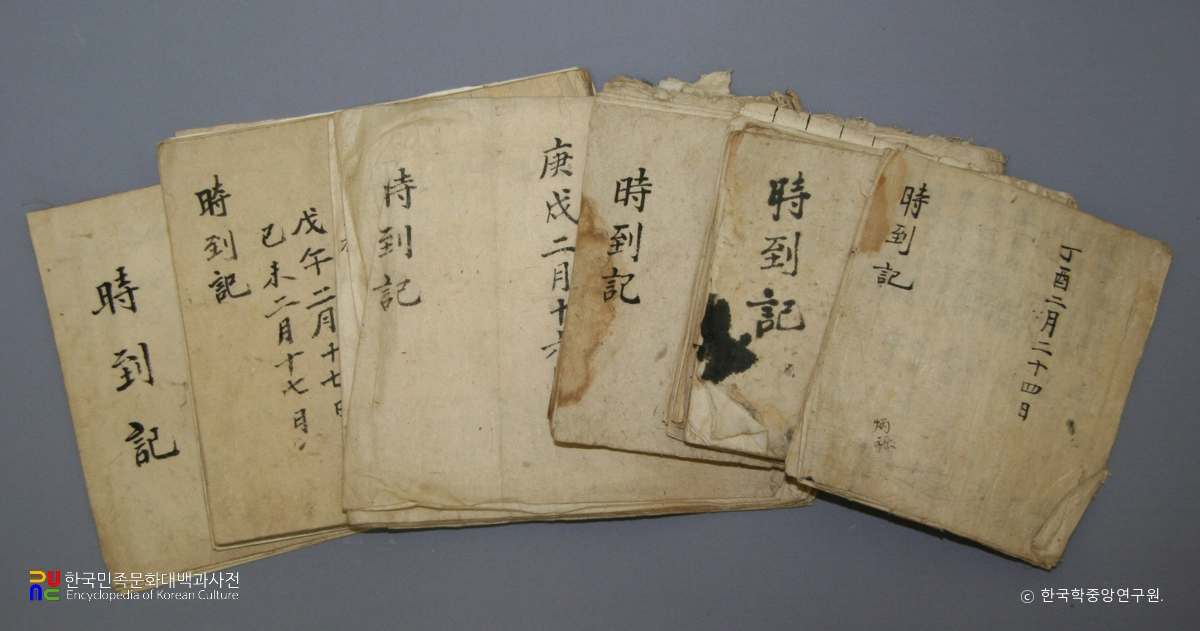 時到記
時到記
戊午二月十七日
己未二月十七月
時到記
庚戌二月十六
時到記
時到記
時到記
丁酉二月二十四日
한국민족문화대백과사전
Encyclopedia of Korean Culture
ⓒ 한국학중앙연구원.